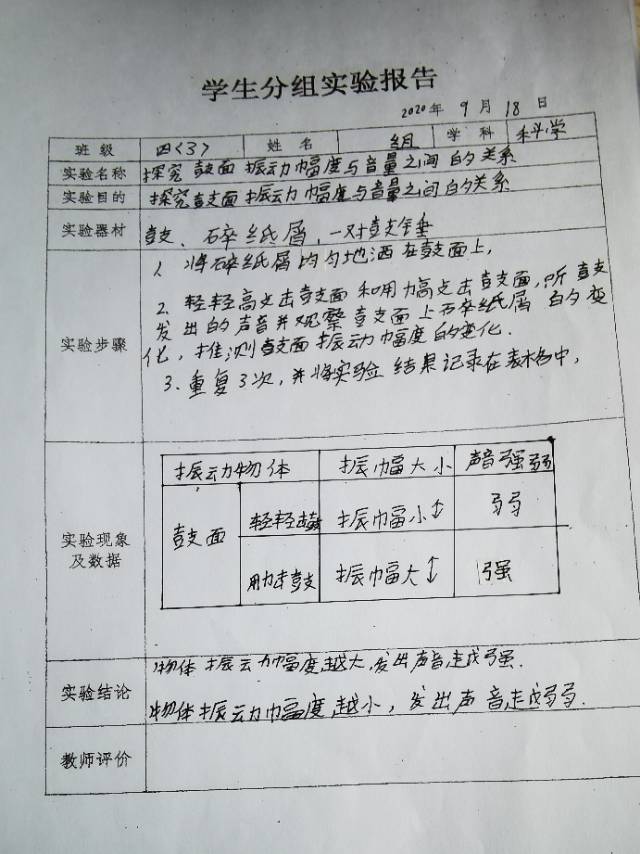 学生分组实验报告
2020年 9月 18日
班级 四(3) 姓名 组 学科 科学
实验名称 探究鼓面振动幅度与音量之间的关系
实验目的 探究鼓面振动幅度与音量之间的关系
实验器材 鼓、碎纸屑,一对鼓锤
实验步骤
1、将碎纸屑均匀地洒在鼓面上,
2、轻轻敲击鼓面和用力敲击鼓面,听鼓
发出的声音并观察鼓面上碎纸屑的变
化,推测鼓面振动幅度的变化.
3.重复3次,并将实验结果记录在表格中,
实验现象及数据
振动物体 振幅大小 声音强弱
鼓面 轻轻击鼓 振幅小↕ 弱
用力击鼓 振幅大↕ 强
实验结论
物体振动幅度越大,发出声音越强.
物体振动幅度越小,发出声音越弱.
教师评价